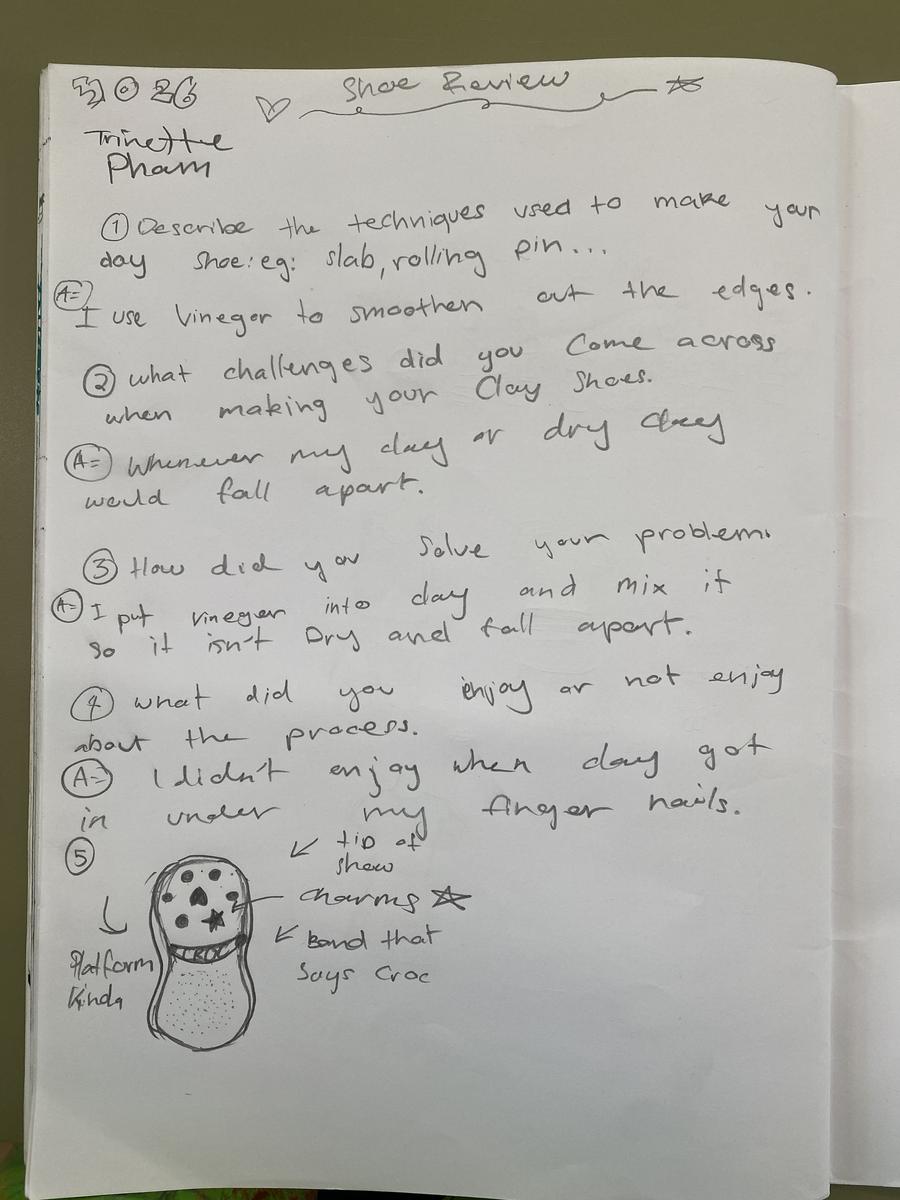 Shoe Review
Trinette
Pham
① Describe the techniques used to make your
clay shoe: eg: slab, rolling pin...
A= I use Vineger to smoothen out the edges.
② what challenges did you Come across
when making your Clay Shoes.
A= Whenever my clay or dry clay
would fall apart.
③ How did you Solve your problem.
A= I put vineger into clay and mix it
so it isn't Dry and fall apart.
④ what did you enjoy or not enjoy
about the process.
A= I didn't enjoy when clay got
in under my finger nails.
⑤
tip of
show
charms
Band that
Says Croc
Platform
Kinda
CROC